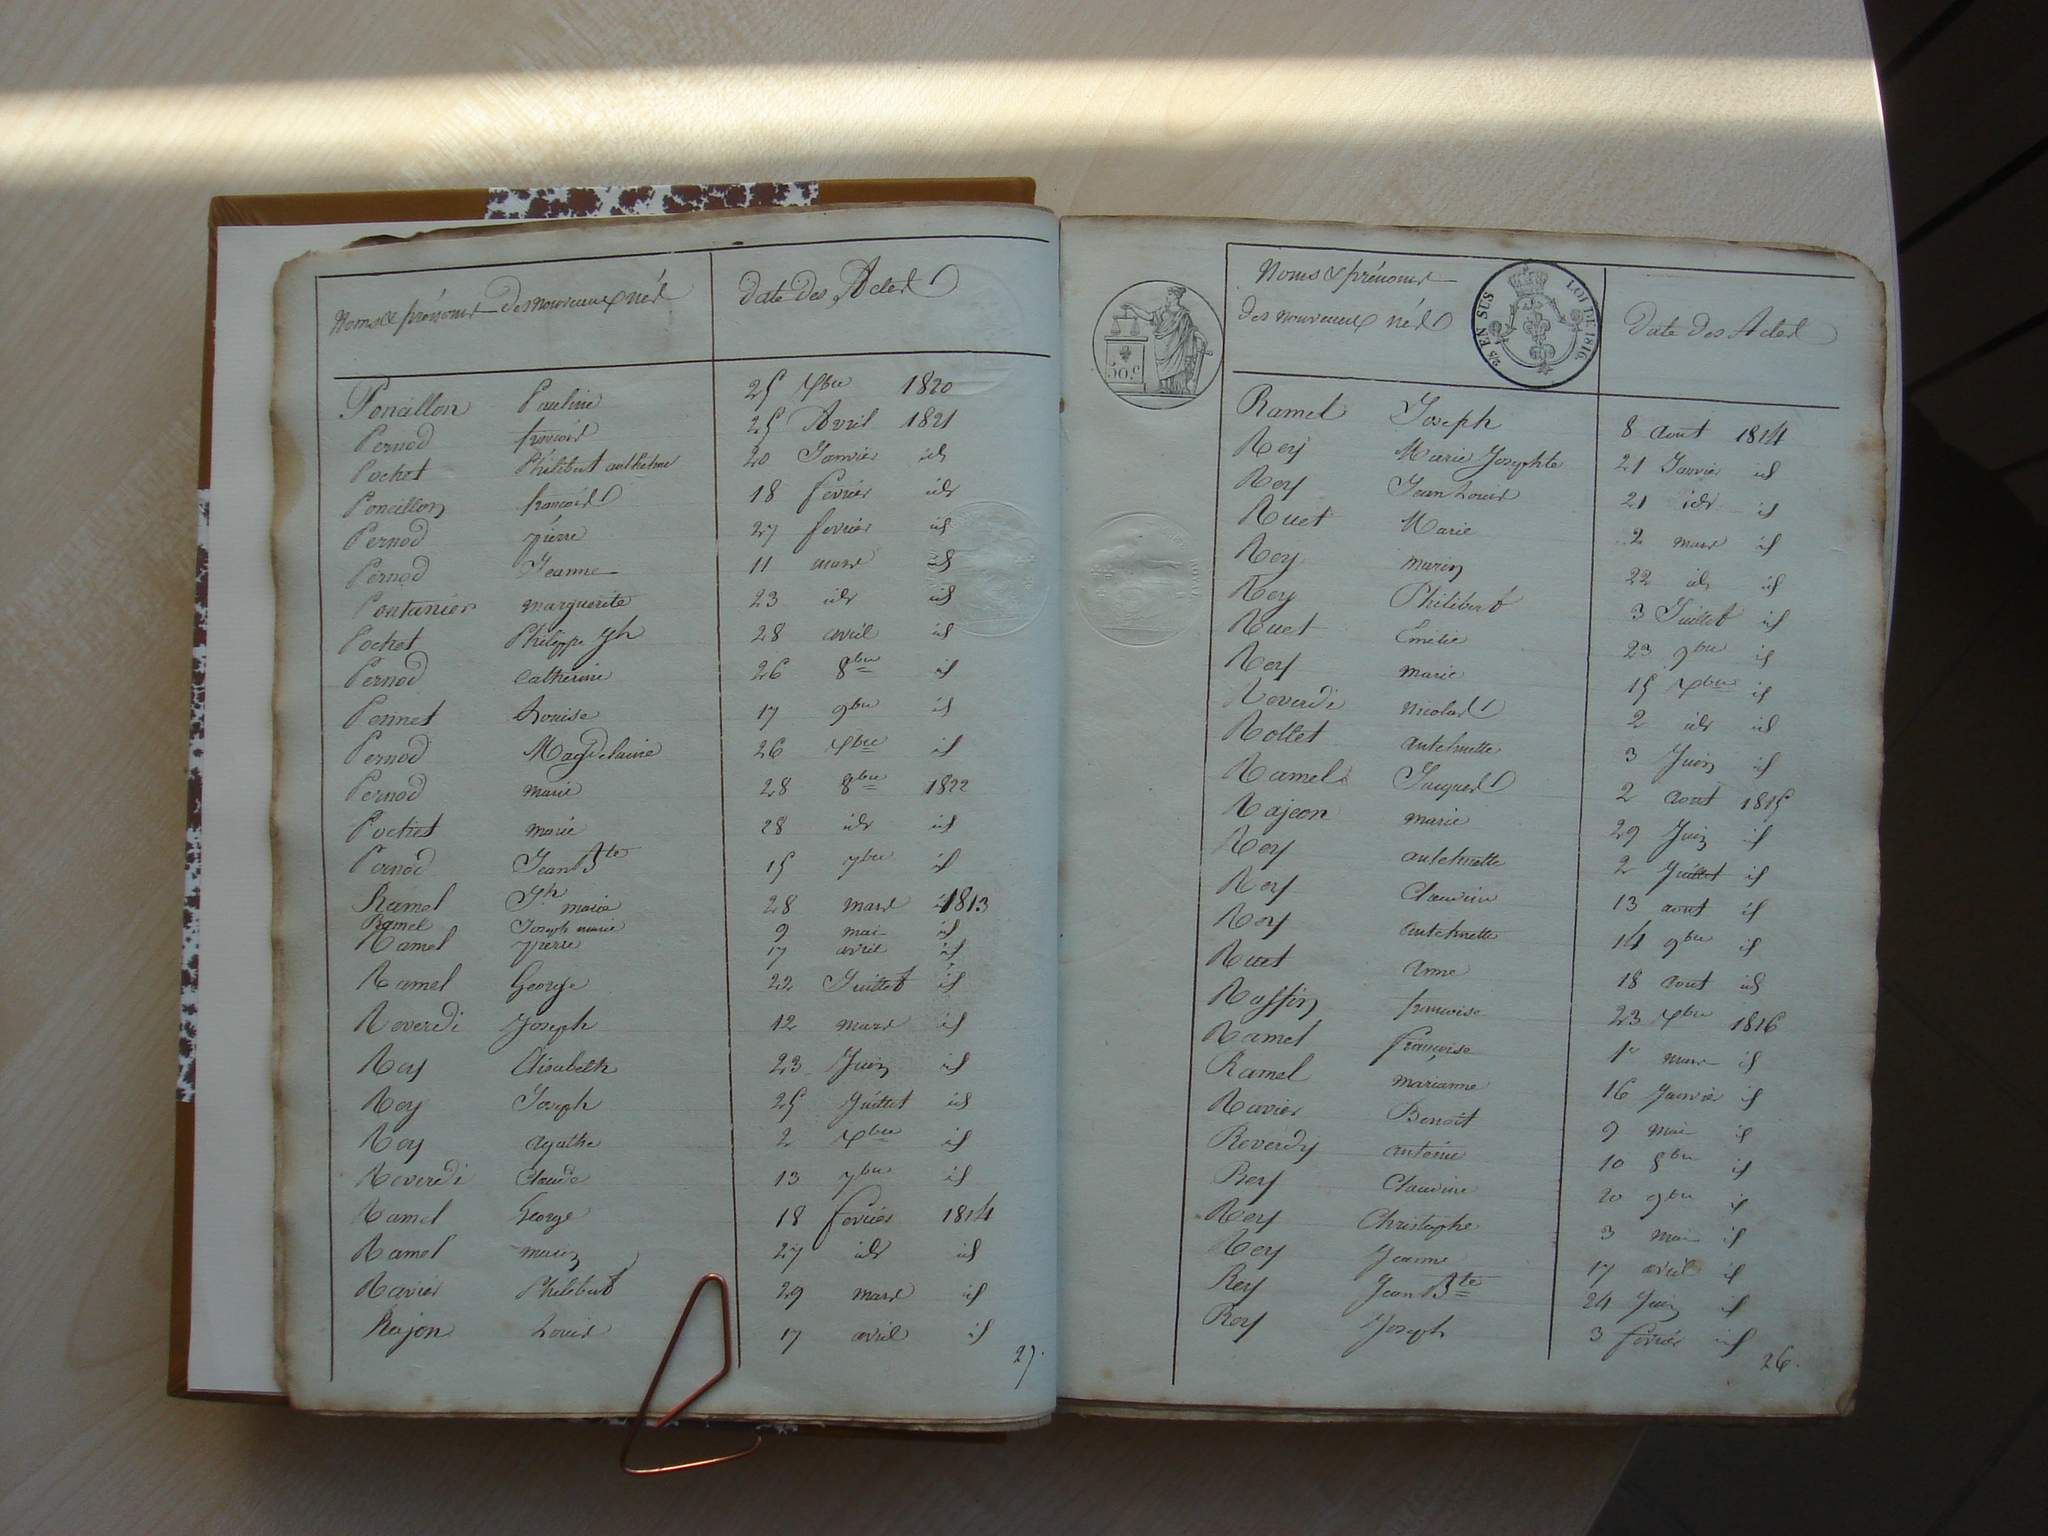 Noms & prénoms des nouveaux nés date des Actes
Poncillon Pauline 25 Xbre 1820
Pernod francois 25 Avril 1821
Pochet Philibert anthelme 20 Janvier id
Poncillon francois 18 fevrier idr
Pernod pierre 27 fevrier id
Pernod Jeanne 11 mars id
Pontanier marguerite 23 idr id
Pochet Philippe Jh 28 avril id
Pernod Catherine 26 8bre id
Perinet Louise 17 9bre id
Pernod Magdelaine 26 Xbre id
Pernod marie 28 8bre 1822
Pochet marie 28 idr id
Pernod Jean Bte 15 7bre id
Ramel Jh marie 28 mars 1813
Ramel Joseph marie 9 mai id
Ramel pierre 17 avril id
Ramel George 22 Juillet id
Reverdi Joseph 12 mars id
Rey Elisabeth 23 Juin id
Rey Joseph 25 Juillet id
Rey agathe 2 Xbre id
Reverdi Claude 13 7bre id
Ramel George 18 fevrier 1814
Ramel marin 27 idr id
Ravier Philibert 29 mars id
Rajon Louis 17 avril id
27.
Noms & prénoms
des nouveaux nés date des Actes
50.c
2/5 EN SUS LOI DE 1816.
Ramel Joseph 8 aout 1814
Rey Marie Josephte 21 Janvier id
Rey Jean Louis 21 idr id
Ruet Marie 2 mars id
Rey marin 22 idr id
Rey Philibert 3 Juillet id
Ruet Emélie 23 9bre id
Rey marie 15 Xbre id
Reverdi nicolas 2 idr id
Rollet antelmette 3 Juin id
Ramel Jacques 2 aout 1815
Rajeon marie 29 Juin id
Rey antelmette 2 Juillet id
Rey Claudine 13 aout id
Rey antelmette 14 9bre id
Ruet anne 18 aout id
Raffin francoise 23 Xbre 1816
Ramel francoise 1r mars id
Ramel marianne 16 Janvier id
Ravier Benoit 9 mai id
Reverdy antoine 10 8bre id
Rey Claudine 20 9bre id
Rey Christophe 3 mai id
Rey Jeanne 17 avril id
Rey Jean Bte 24 Juin id
Rey Joseph 3 fevrier id
26.